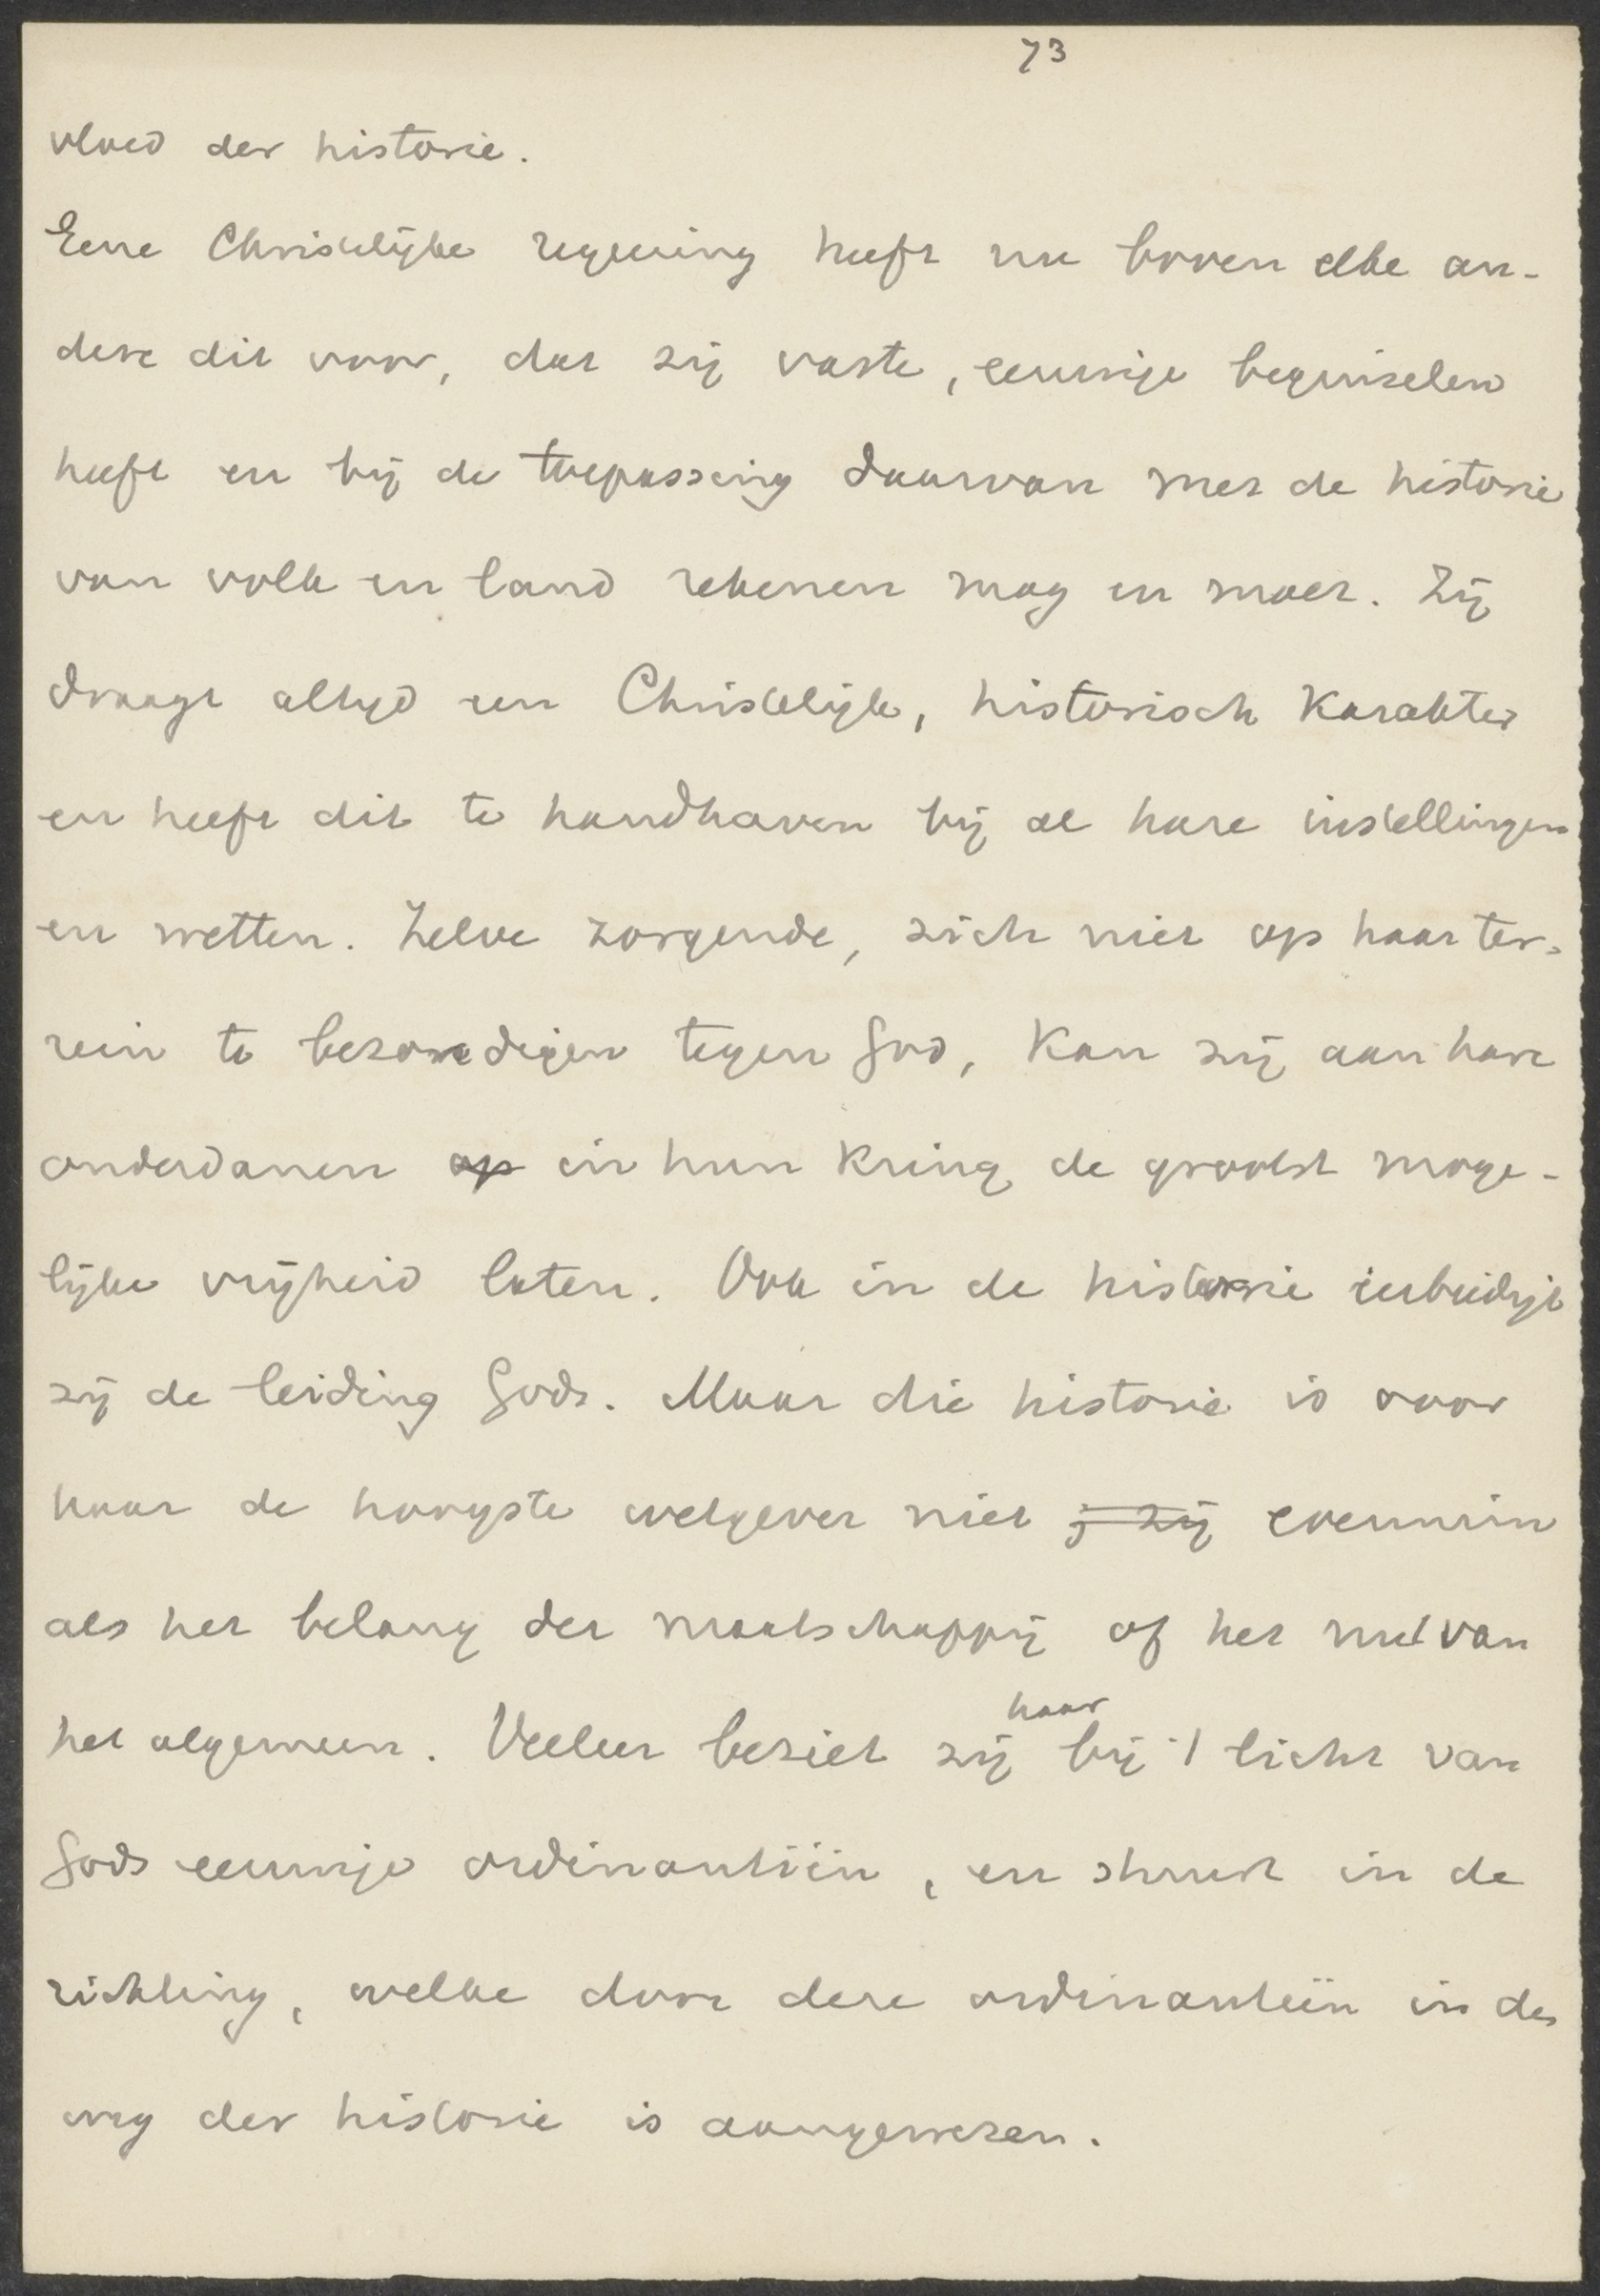 73
vloed der historie.
Eene Christelijke regeering heeft nu boven elke an-
dere dit voor, dat zij vaste, eeuwige beginselen
heeft en bij de toepassing daarvan met de historie
van volk en land rekenen mag en moet. Zij
draagt altijd een Christelijk, historisch Karakter
en heeft dit te handhaven bij al hare instellingen
en wetten. Zelve zorgende, zich niet op haar ter-
rein te bezondigen tegen God, Kan zij aan hare
onderdanen op in hun Kring de grootst moge-
lijke vrijheid laten. Ook in de historie eerbiedigt
zij de leiding Gods. Maar die historie is voor
haar de hoogste wetgever niet ; zij evenmin
als het belang der maatschappij of het nut van
haar
het algemeen. Veeleer beziet zij bij 't licht van
Gods eeuwige ordinantiën, en stuurt in de
richting, welke door deze ordinantiën in den
weg der historie is aangewezen.